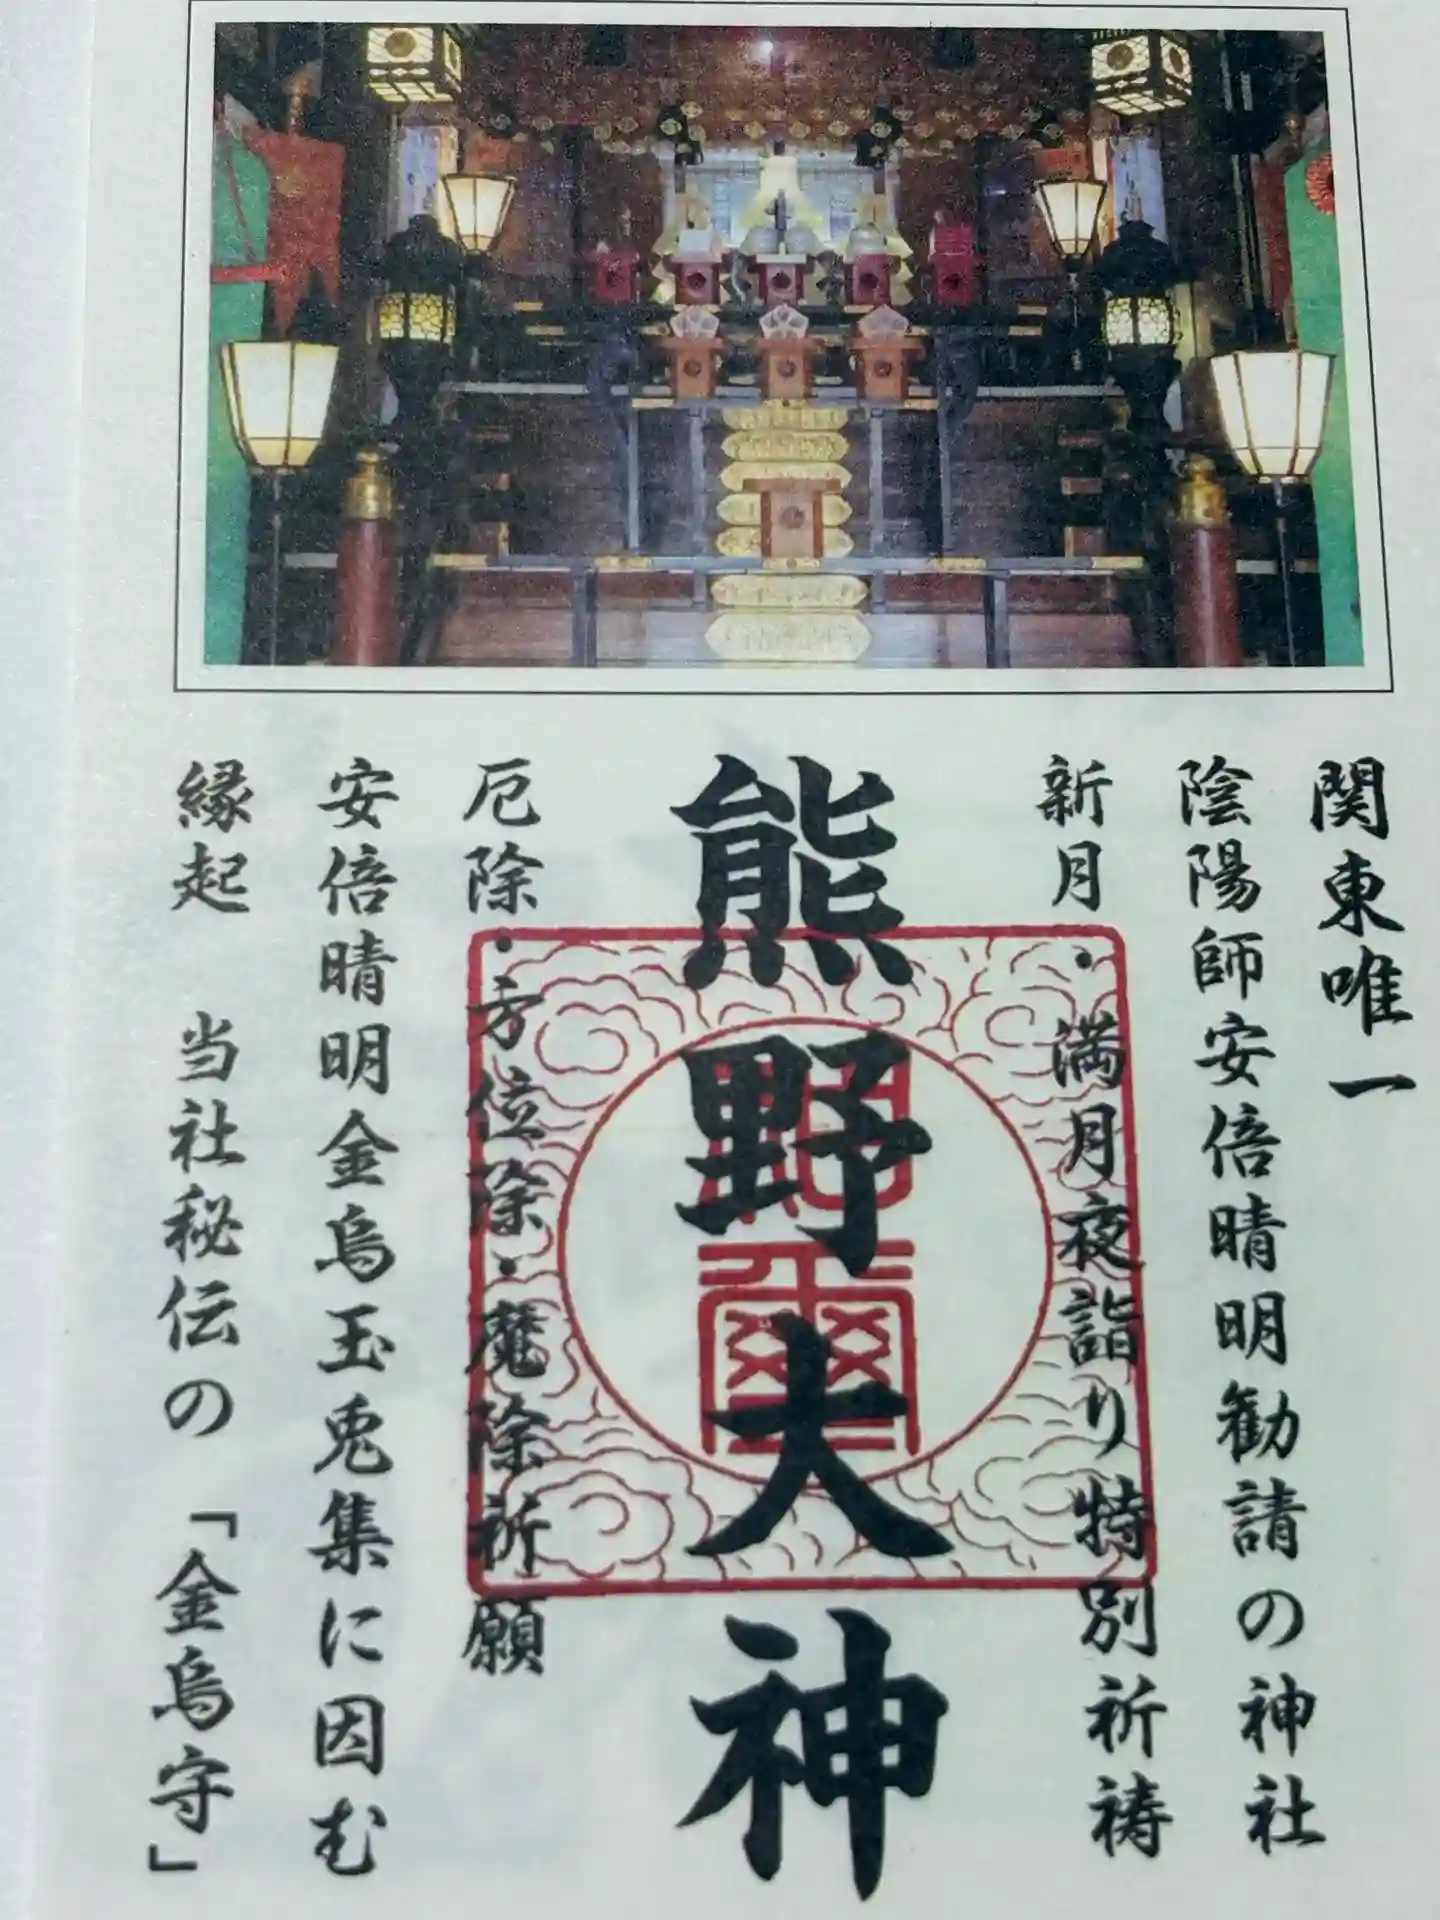 関東唯一
陰陽師安倍晴明勧請の神社
新月・満月夜詣り特別祈祷
熊野大神
厄除・方位除・魔除祈願
安倍晴明金烏玉兎集に因む
縁起　当社秘伝の「金烏守」